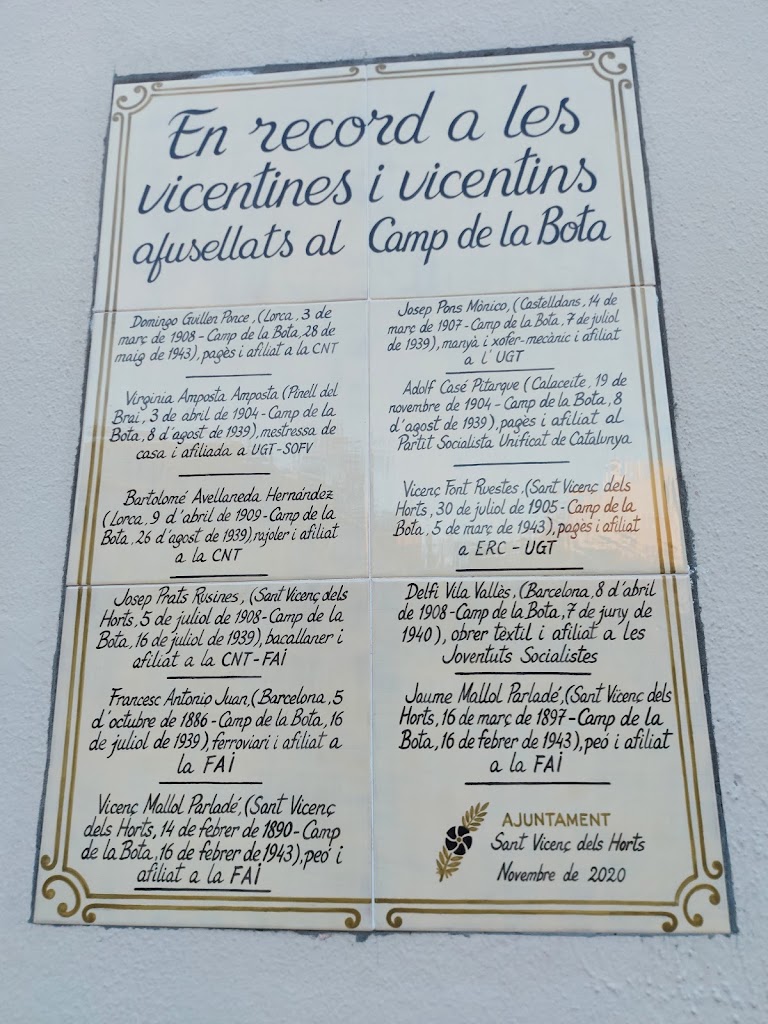 En record a les
vicentines i vicentins
afusellats al Camp de la Bota
Domingo Guillen Ponce, (Lorca, 3 de
març de 1908 - Camp de la Bota, 28 de
maig de 1943), pagès i afiliat a la CNT
Virginia Amposta Amposta (Pinell del
Brai, 3 de abril de 1904 - Camp de la
Bota, 8 d'agost de 1939), mestressa de
casa i afiliada a UGT-SOFV
Bartolomé Avellaneda Hernández
(Lorca, 9 d'abril de 1909 - Camp de la
Bota, 26 d'agost de 1939) rajoler i afiliat
a la CNT
Josep Prats Rusines, (Sant Vicenç dels
Horts, 5 de juliol de 1908 - Camp de la
Bota, 16 de juliol de 1939), bacallaner i
afiliat a la CNT-FAi
Francesc Antonio Juan, (Barcelona, 5
d'octubre de 1886 - Camp de la Bota, 16
de juliol de 1939), ferroviari i afiliat a
la FAi
Vicenç Mallol Parladé, (Sant Vicenç
dels Horts, 14 de febrer de 1890 - Camp
de la Bota, 16 de febrer de 1943), peó i
afiliat a la FAi
Josep Pons Mònico, (Castelldans, 14 de
març de 1907 - Camp de la Bota, 7 de juliol
de 1939), manyà i xofer-mecànic i afiliat
a l'UGT
Adolf Casé Pitarque (Calaceite, 19 de
novembre de 1904 - Camp de la Bota, 8
d'agost de 1939), pagès i afiliat al
Partit Socialista Unificat de Catalunya
Vicenç Font Ruestes, (Sant Vicenç dels
Horts, 30 de juliol de 1905 - Camp de la
Bota, 5 de març de 1943), pagès i afiliat
a ERC - UGT
Delfi Vila Vallès, (Barcelona, 8 d'abril
de 1908 - Camp de la Bota, 7 de juny de
1940), obrer tèxtil i afiliat a les
Joventuts Socialistes
Jaume Mallol Parladé, (Sant Vicenç dels
Horts, 16 de març de 1897 - Camp de la
Bota, 16 de febrer de 1943), peó i afiliat
a la FAi
AJUNTAMENT
Sant Vicenç dels Horts
Novembre de 2020